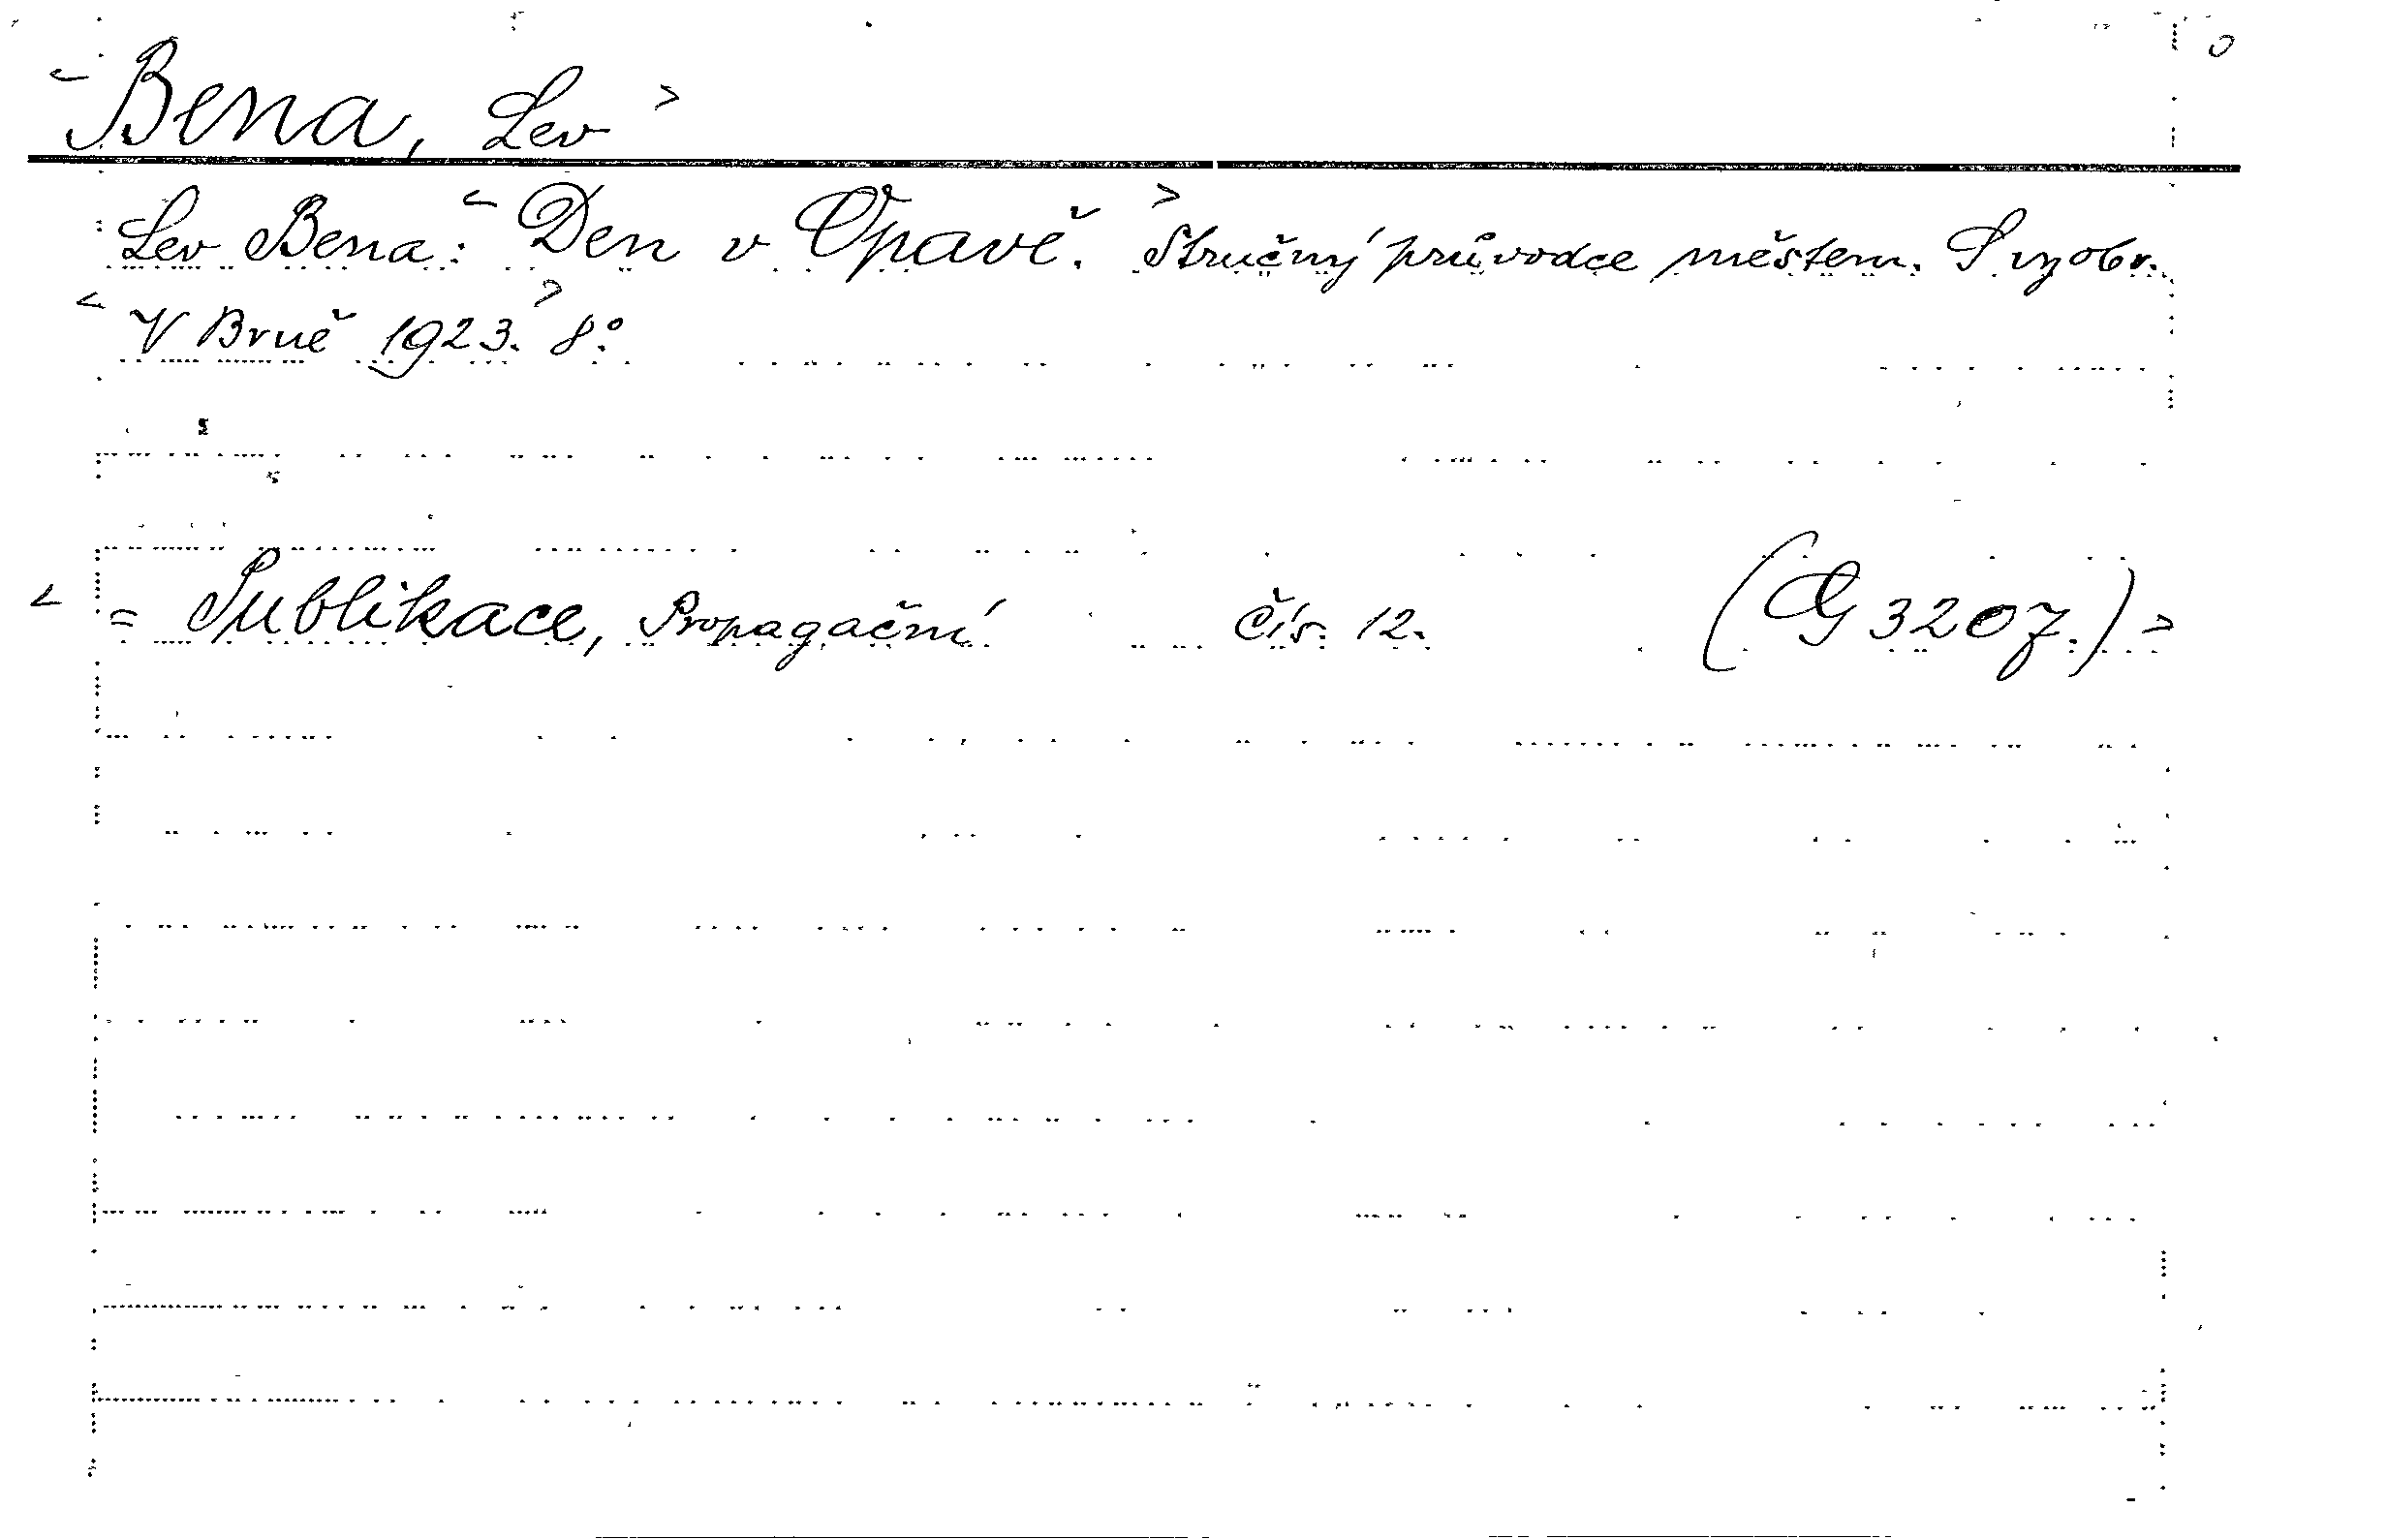 < Bena, Lev >
Lev Bena: < Den v Opavě. > Stručný průvodce městem. S vyobr.
< V Brně 1923. > 8°.
< = Publikace, Propagační čís. 12. (G 3207.) >